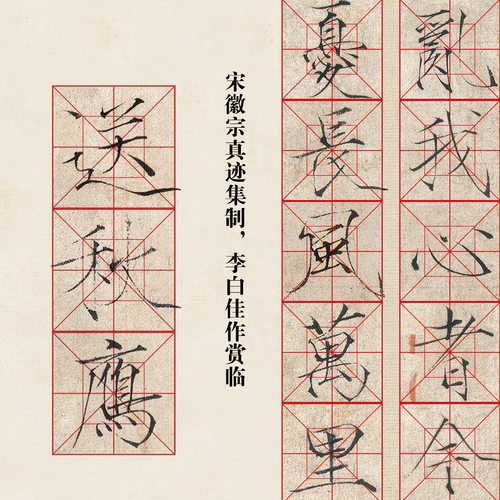 亂我心者今
憂長風萬里
宋徽宗真迹集制，李白佳作赏临
送秋鴈